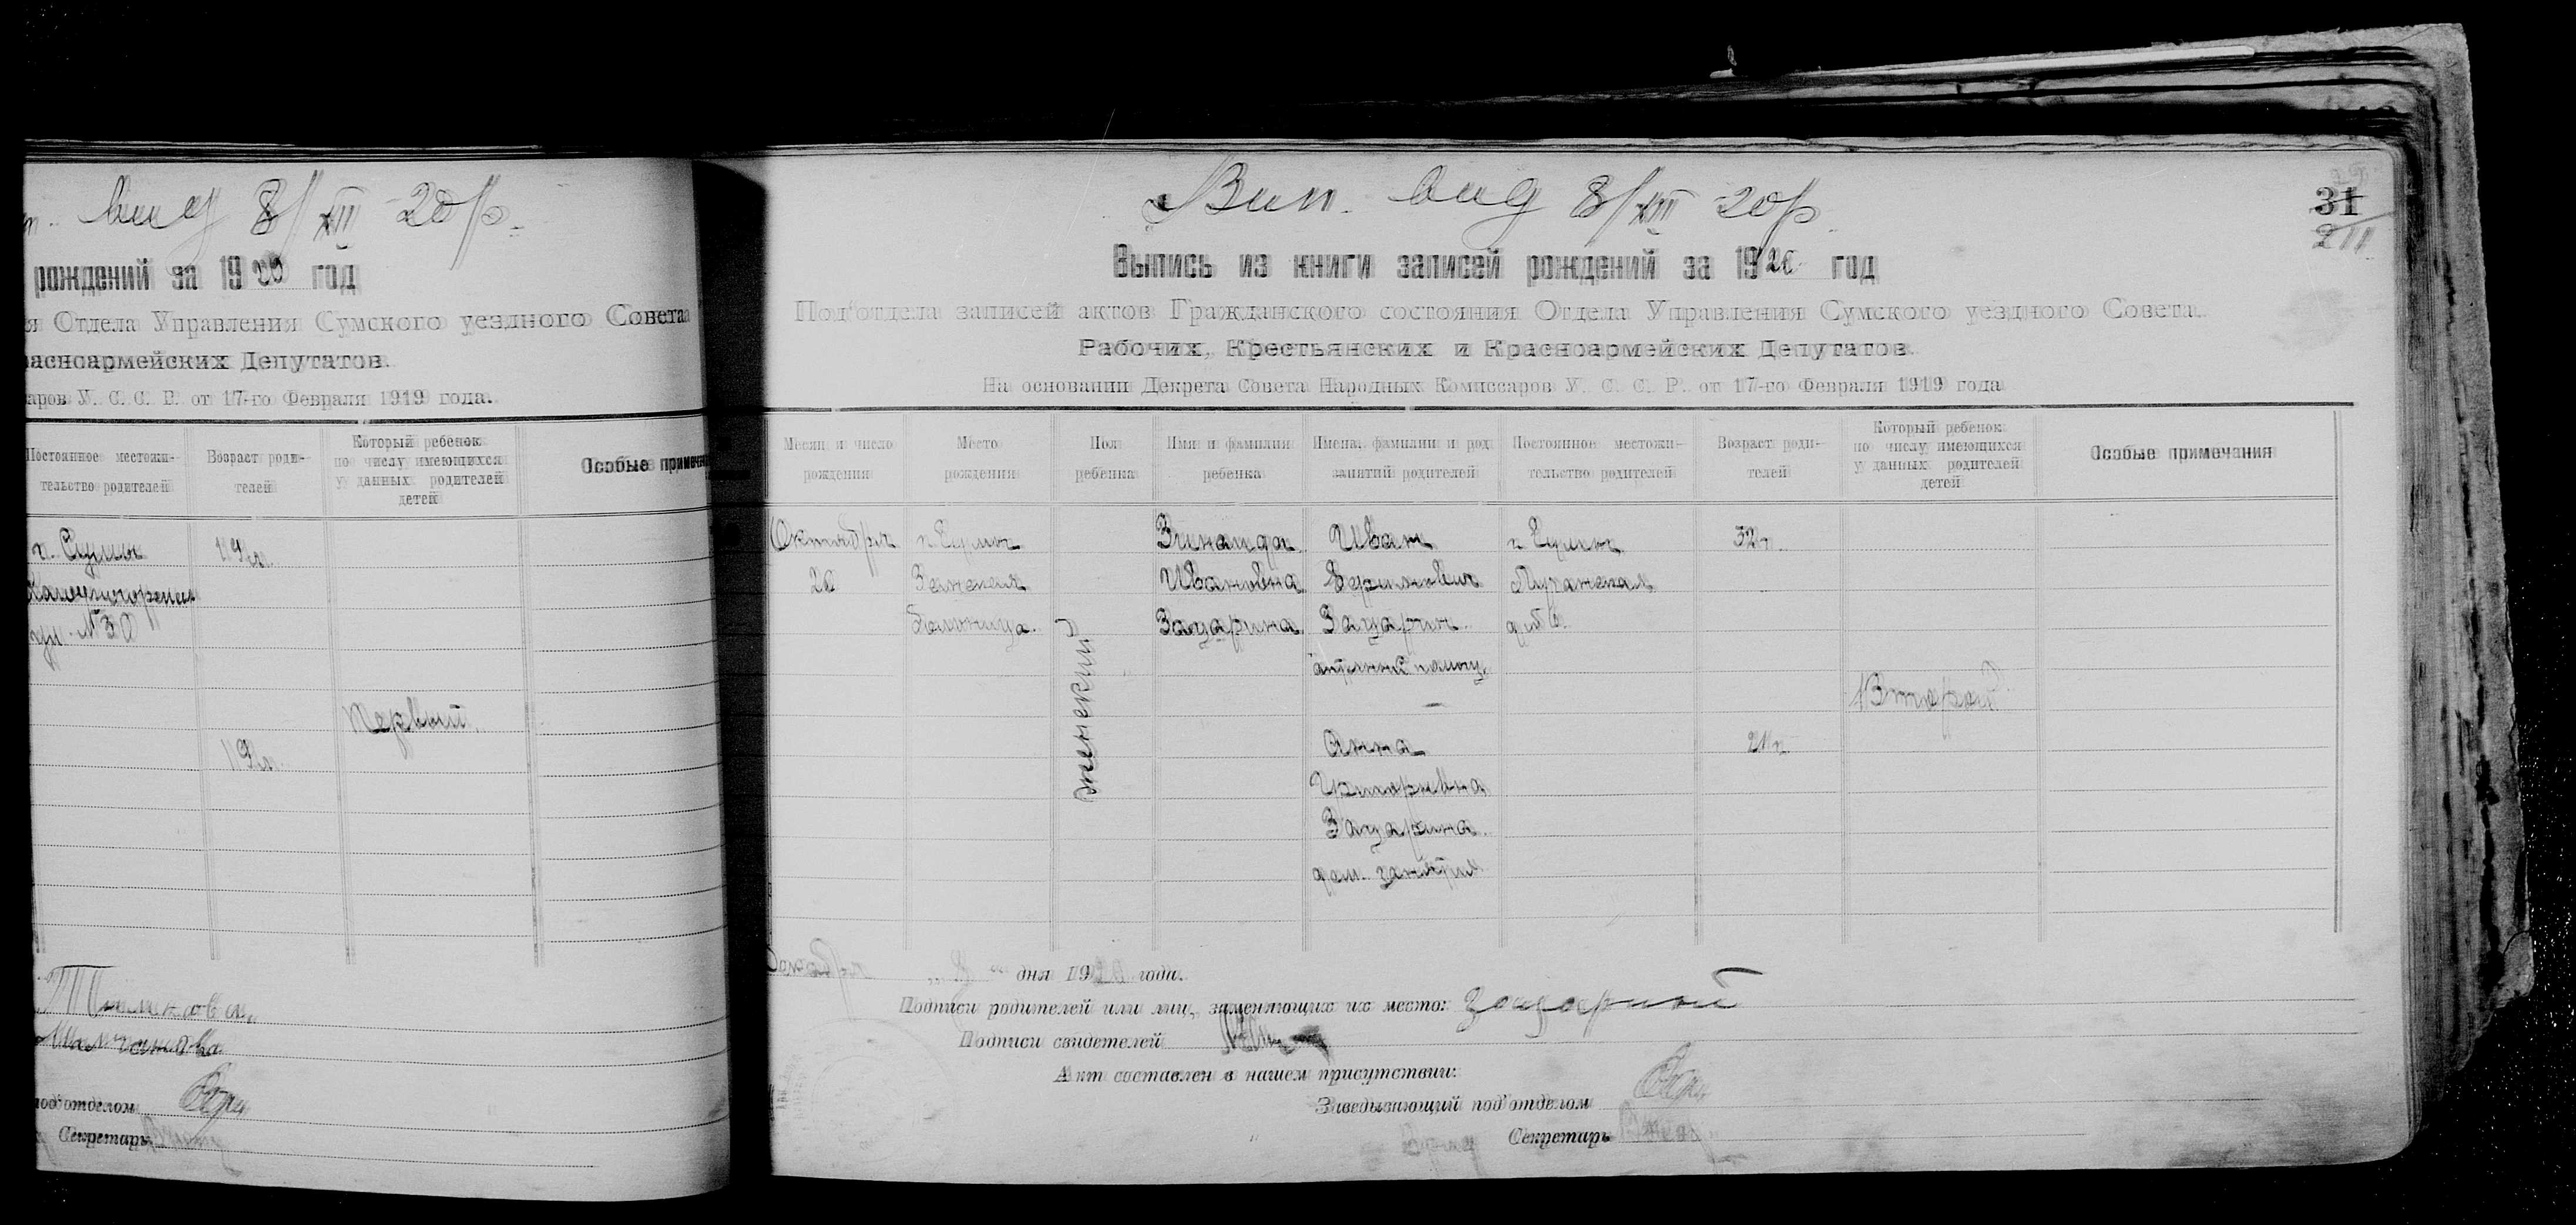 выд 8/XII 20 р.
рождений за 1920 год
ия Отдела Управления Сумского уездного Совета
расноармейских Депутатов.
аров У. С. С. Р. от 17-го Февраля 1919 года.
Постоянное местожи-
тельство родителей
Возраст роди-
телей
Который ребенок
по числу имеющихся
у данных родителей
детей
Особые примеча
г. Сумы
ул. № 30
19 л.
19 л.
Первый.
под'отделом
Секретарь
Вип. вид 8/XII 20 р.
31
211
Выпись из книги записей рождений за 1920 год
Под'отдела записей актов Гражданского состояния Отдела Управления Сумского уездного Совета
Рабочих, Крестьянских и Красноармейских Депутатов.
На основании Декрета Совета Народных Комиссаров У. С. С. Р. от 17-го Февраля 1919 года
Месяц и число
рождения
Место
рождения
Пол
ребенка
Имя и фамилия
ребенка
Имена, фамилии и род
занятий родителей
Постоянное местожи-
тельство родителей
Возраст роди-
телей
Который ребенок
по числу имеющихся
у данных родителей
детей
Особые примечания
Октября
26
г. Сумы
Земская
больница.
женский
Зинаида
Ивановна
Зацарина
Иван
Зацарин
Анна
Зацарина
дом. занятия
г. Сумы
32 г.
21 г.
Второй
" 8 " дня 1920 года.
Подписи родителей или лиц, заменяющих их место: Зацарный
Подписи свидетелей
Акт составлен в нашем присутствии:
Заведывающий под'отделом
Секретарь